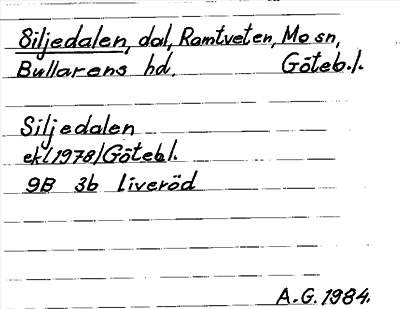 Siljedalen, dal, Ramtveten, Mo sn,
Bullarens hd. Göteb.l.
Siljedalen
ekl 1978/Göteb.l.
9B 3b Liveröd
A.G. 1984.